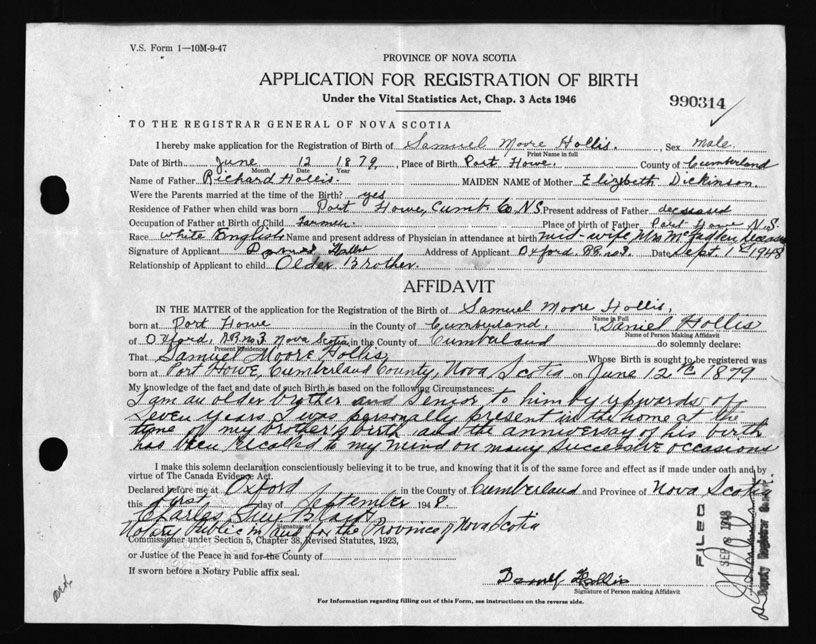 V.S. Form 1—10M-9-47
PROVINCE OF NOVA SCOTIA
APPLICATION FOR REGISTRATION OF BIRTH
Under the Vital Statistics Act, Chap. 3 Acts 1946
990314
TO THE REGISTRAR GENERAL OF NOVA SCOTIA
I hereby make application for the Registration of Birth of Samuel Moore Hollis. Sex Male.
Print Name in full
Date of Birth June 12 1879, Place of Birth Port Howe. County of Cumberland
Month Date Year
Name of Father Richard Hollis. MAIDEN NAME of Mother Elizabeth Dickinson.
Were the Parents married at the time of Birth? yes
Residence of Father when child was born Port Howe, Cumb Co. N.S. Present address of Father deceased
Occupation of Father at Birth of Child Farmer. Place of birth of Father Port Howe N.S.
Race White English Name and present address of Physician in attendance at birth mid-wife Mrs
Signature of Applicant Hollis Address of Applicant Oxford. RR. no 3. Date Sept. 1st 1948
Relationship of Applicant to child Older Brother.
AFFIDAVIT
IN THE MATTER of the application for the Registration of Birth of Samuel Moore Hollis.
Name in Full
born at Port Howe in the County of Cumberland. I, Daniel Hollis
Name of Person Making Affidavit
of Oxford, RR. no 3 Nova Scotia in the County of Cumberland do solemnly declare:
Present Residence
That Samuel Moore Hollis, Whose Birth is sought to be registered was
born at Port Howe, Cumberland County, Nova Scotia on June 12th 1879
My knowledge of the fact and date of such Birth is based on the following Circumstances:
I am an older brother and senior to him by upwards of
seven years I was personally present in the home at the
time of my brother's birth and the anniversary of his birth
has been recalled to my mind on many successive occasions
I make this solemn declaration conscientiously believing it to be true, and knowing that it is of the same force and effect as if made under oath and by
virtue of The Canada Evidence Act.
Declared before me at Oxford in the County of Cumberland and Province of Nova Scotia
this first day of September 1948
Charles
Signature of
Notary Public in and for the Province of Nova Scotia
Commissioner under Section 5, Chapter 38, Revised Statutes, 1923,
or Justice of the Peace in and for the County of
If sworn before a Notary Public affix seal.
Daniel Hollis
Signature of Person making Affidavit
For Information regarding filling out of this Form, see instructions on the reverse side.
FILED
SEP 8 1948
Deputy Registrar General